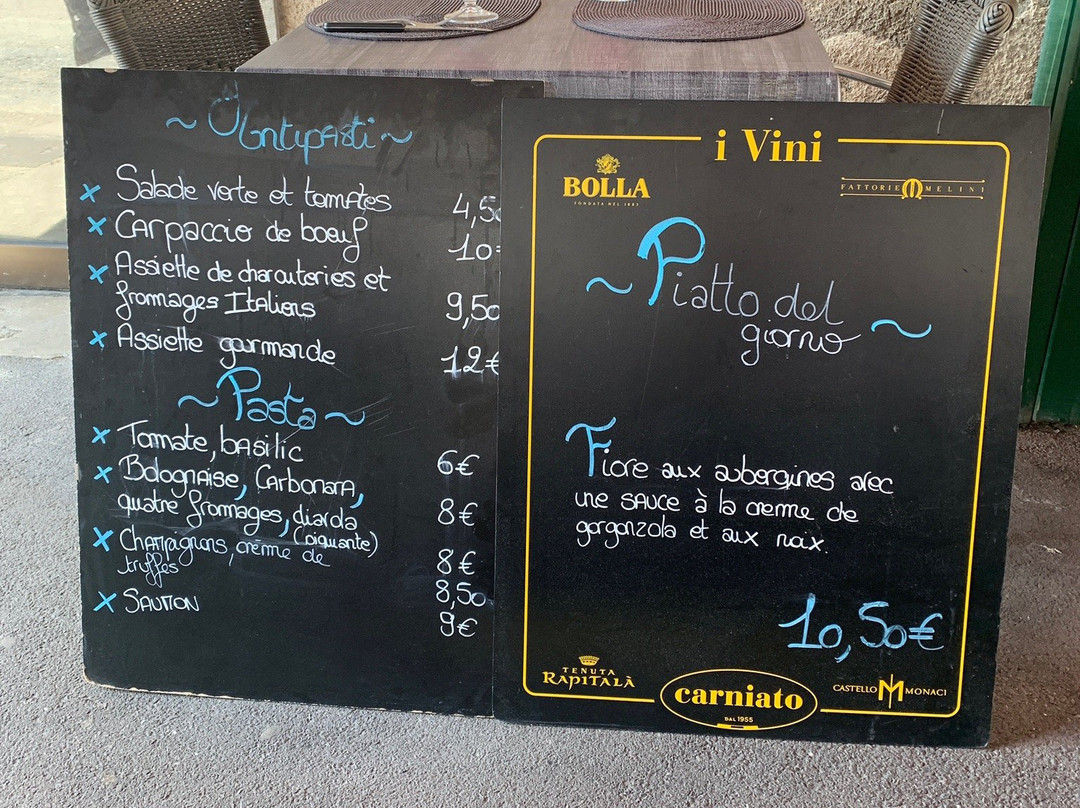 ~ Antipasti ~
x Salade verte et tomates 4,50
x Carpaccio de boeuf 10
x Assiette de charcuteries et
fromages Italiens 9,50
x Assiette gourmande 12€
~ Pasta ~
x Tomate, basilic 6€
x Bolognaise, Carbonara,
quatre fromages, diavola 8€
(piquante)
x Champignons, crème de 8€
truffes 8,50
x Saumon 9€
i Vini
BOLLA
FONDATA NEL 1883
FATTORIE MELINI
~ Piatto del
giorno ~
Fiore aux aubergines avec
une sauce à la creme de
gorgonzola et aux noix.
10,50€
TENUTA
RAPITALÀ
carniato
DAL 1955
CASTELLO MONACI